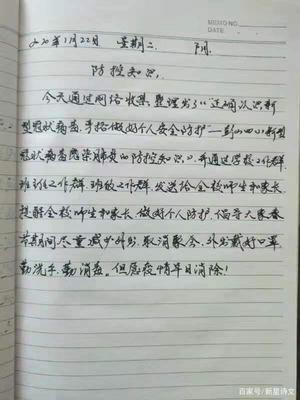 MEMO NO.
DATE
2020年1月22日 星期二 阴
防控知识
今天通过网络收集、整理出了"正确认识新
型冠状病毒,手拾做好个人安全防护—彭山四小新型
冠状病毒感染肺炎的防控知识",并通过学校工作群、
班主任工作群、班级工作群,发送给全校师生和家长,
提醒全校师生和家长做好个人防护,倡导大家春
节期间尽量减少外出,取消聚会,外出戴好口罩,
勤洗手、勤消毒。但愿疫情早日消除!
百家号/新星诗文